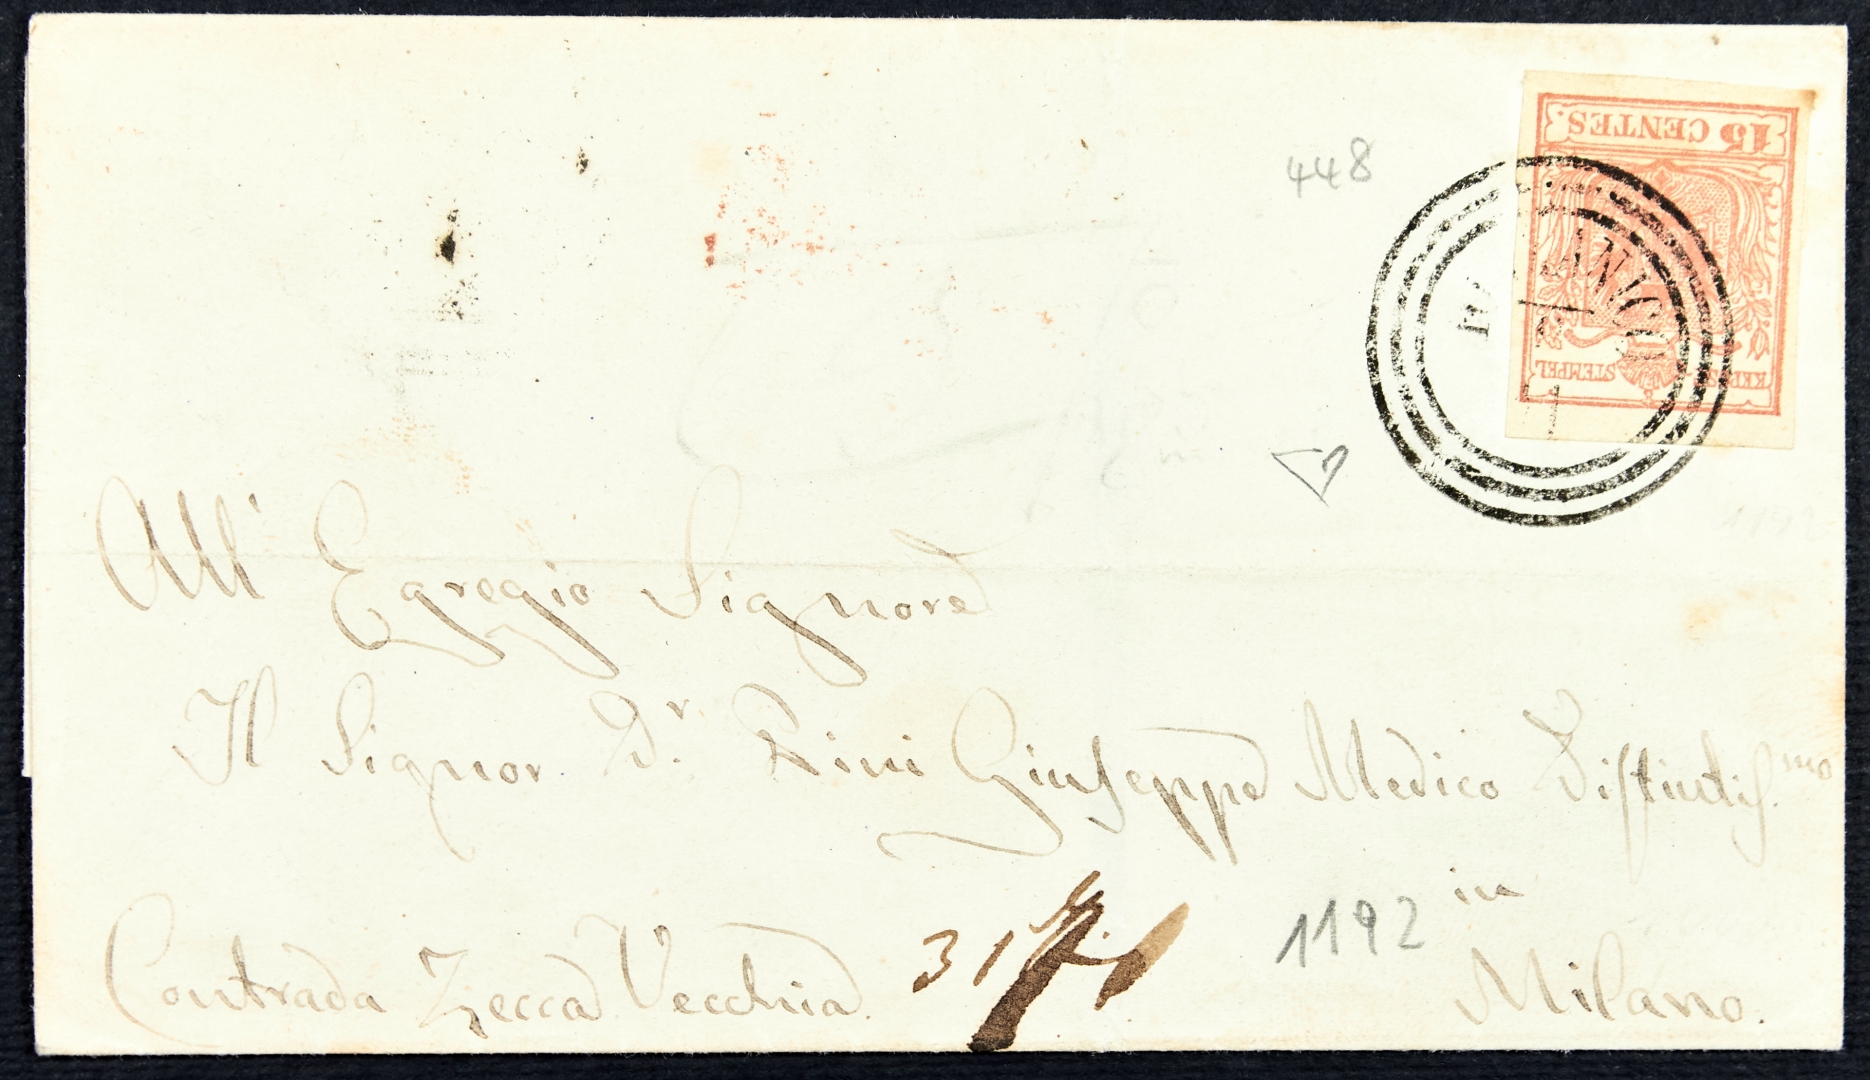 15 CENTES.
KKP
STEMPEL
448
All' Egregio Signore
Il Signor Dr. Pini Giuseppe Medico Distintis.mo
in
Contrada Zecca Vecchia 31
1192
Milano.